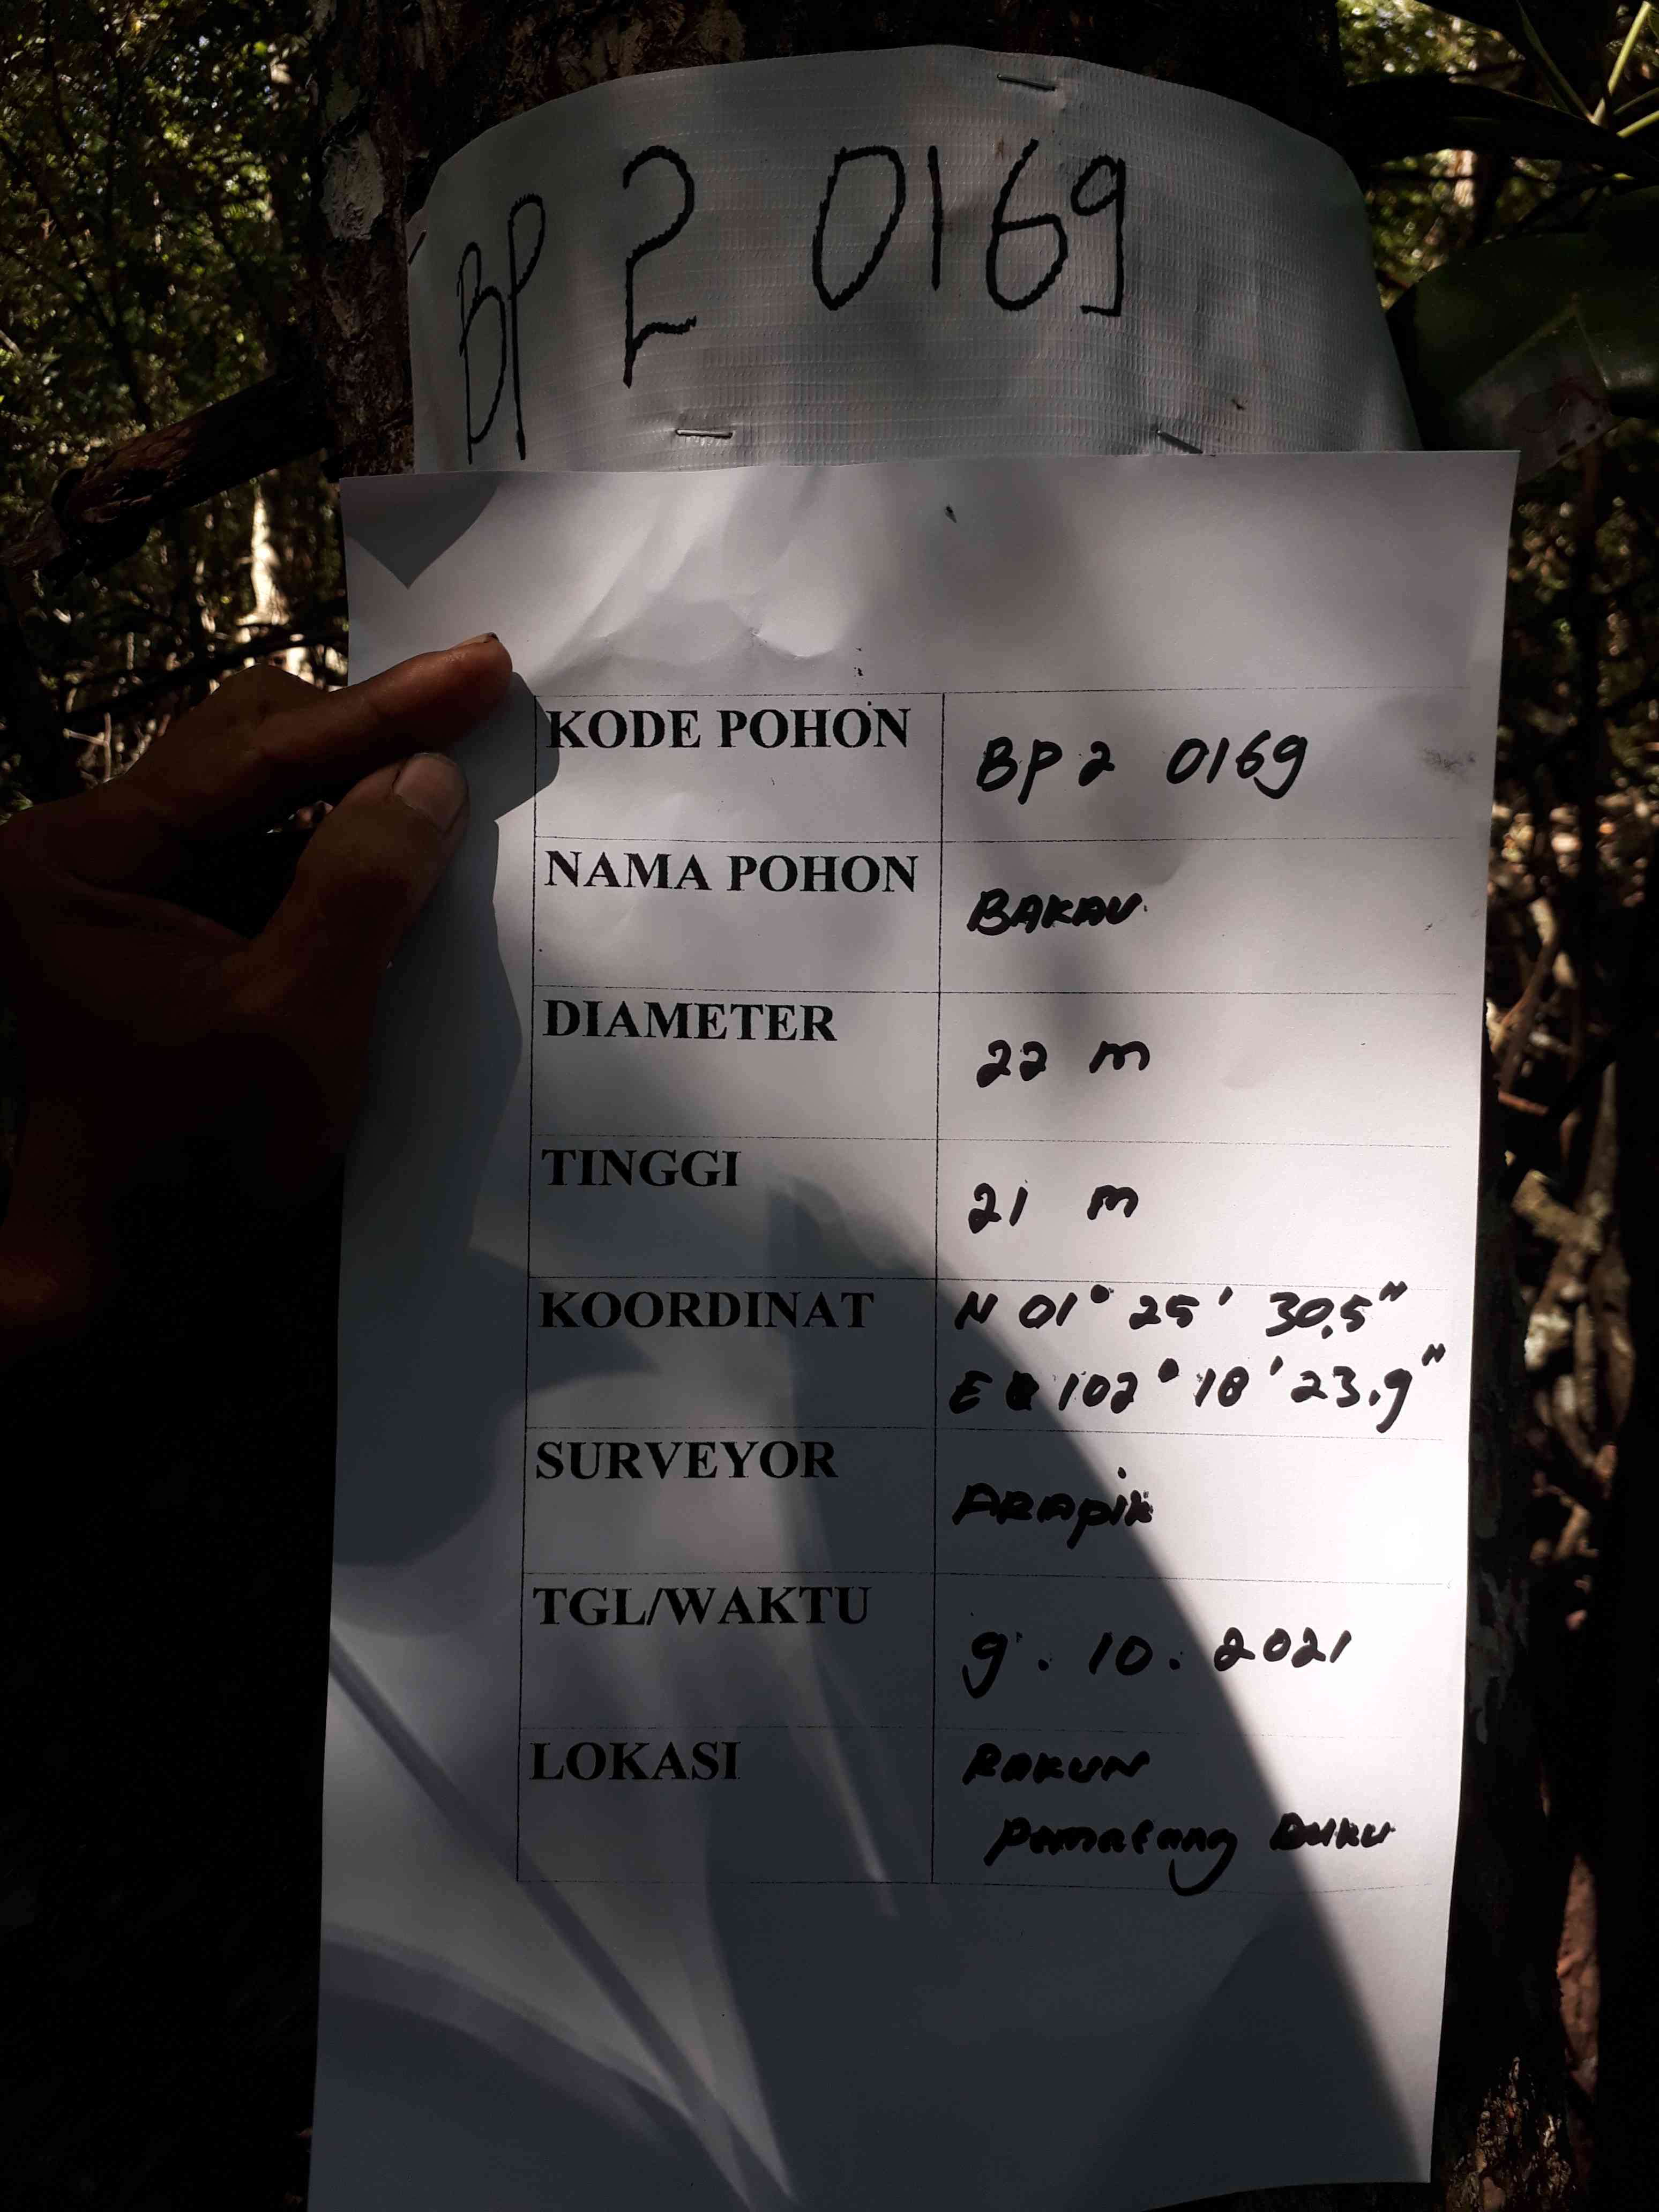 BP 2 0169
KODE POHON BP 2 0169
NAMA POHON BAKAU
DIAMETER 22 m
TINGGI 21 m
KOORDINAT N 01° 25' 30,5"
E 102° 18' 23.9"
SURVEYOR ARAPIK
TGL/WAKTU 9. 10. 2021
LOKASI RAKUN
Pamatang Duku